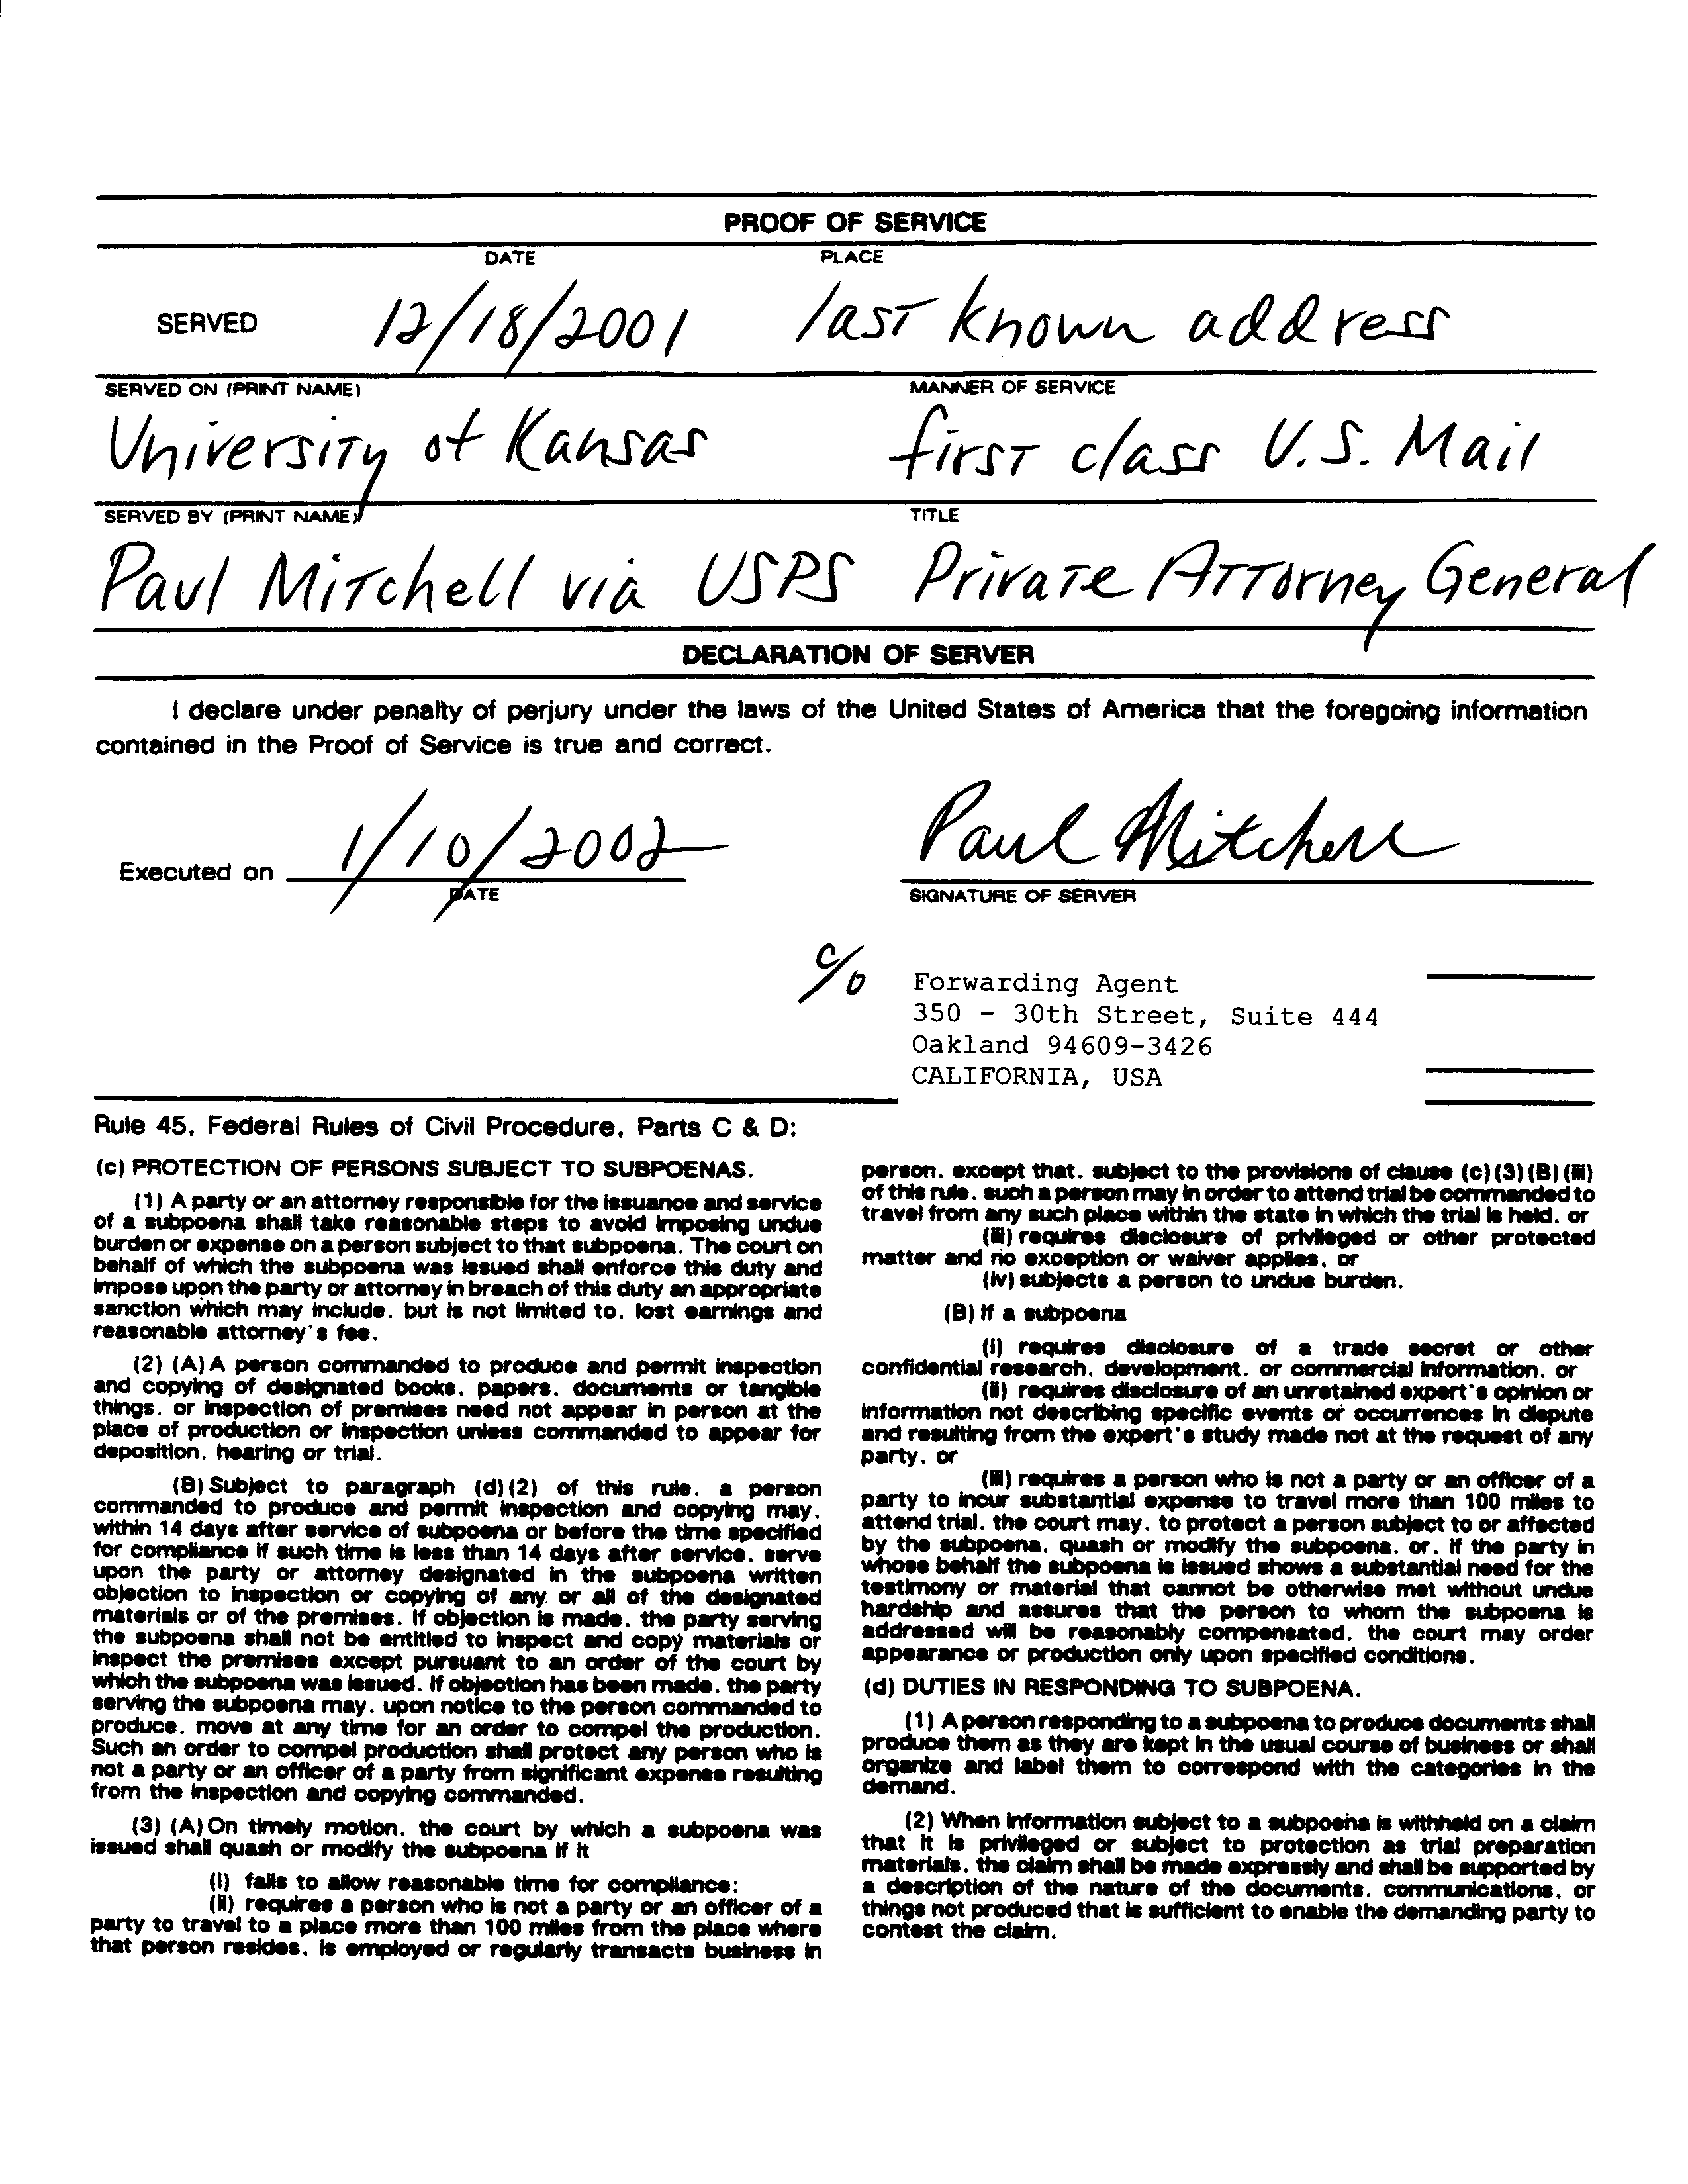 PROOF OF SERVICE
DATE PLACE
SERVED 12/18/2001 last known address
SERVED ON (PRINT NAME) MANNER OF SERVICE
University of Kansas first class U.S. Mail
SERVED BY (PRINT NAME) TITLE
Paul Mitchell via USPS Private Attorney General
DECLARATION OF SERVER
I declare under penalty of perjury under the laws of the United States of America that the foregoing information
contained in the Proof of Service is true and correct.
Executed on 1/10/2002 Paul Mitchell
DATE SIGNATURE OF SERVER
c/o Forwarding Agent
350 - 30th Street, Suite 444
Oakland 94609-3426
CALIFORNIA, USA
Rule 45, Federal Rules of Civil Procedure, Parts C & D:
(c) PROTECTION OF PERSONS SUBJECT TO SUBPOENAS.
(1) A party or an attorney responsible for the issuance and service
of a subpoena shall take reasonable steps to avoid imposing undue
burden or expense on a person subject to that subpoena. The court on
behalf of which the subpoena was issued shall enforce this duty and
impose upon the party or attorney in breach of this duty an appropriate
sanction which may include, but is not limited to, lost earnings and
reasonable attorney's fee.
(2) (A) A person commanded to produce and permit inspection
and copying of designated books, papers, documents or tangible
things, or inspection of premises need not appear in person at the
place of production or inspection unless commanded to appear for
deposition, hearing or trial.
(B) Subject to paragraph (d)(2) of this rule, a person
commanded to produce and permit inspection and copying may,
within 14 days after service of subpoena or before the time specified
for compliance if such time is less than 14 days after service, serve
upon the party or attorney designated in the subpoena written
objection to inspection or copying of any or all of the designated
materials or of the premises. If objection is made, the party serving
the subpoena shall not be entitled to inspect and copy materials or
inspect the premises except pursuant to an order of the court by
which the subpoena was issued. If objection has been made, the party
serving the subpoena may, upon notice to the person commanded to
produce, move at any time for an order to compel the production.
Such an order to compel production shall protect any person who is
not a party or an officer of a party from significant expense resulting
from the inspection and copying commanded.
(3) (A) On timely motion, the court by which a subpoena was
issued shall quash or modify the subpoena if it
(i) fails to allow reasonable time for compliance;
(ii) requires a person who is not a party or an officer of a
party to travel to a place more than 100 miles from the place where
that person resides, is employed or regularly transacts business in
person, except that, subject to the provisions of clause (c)(3)(B)(iii)
of this rule, such a person may in order to attend trial be commanded to
travel from any such place within the state in which the trial is held, or
(iii) requires disclosure of privileged or other protected
matter and no exception or waiver applies, or
(iv) subjects a person to undue burden.
(B) If a subpoena
(i) requires disclosure of a trade secret or other
confidential research, development, or commercial information, or
(ii) requires disclosure of an unretained expert's opinion or
information not describing specific events or occurrences in dispute
and resulting from the expert's study made not at the request of any
party, or
(iii) requires a person who is not a party or an officer of a
party to incur substantial expense to travel more than 100 miles to
attend trial, the court may, to protect a person subject to or affected
by the subpoena, quash or modify the subpoena, or, if the party in
whose behalf the subpoena is issued shows a substantial need for the
testimony or material that cannot be otherwise met without undue
hardship and assures that the person to whom the subpoena is
addressed will be reasonably compensated, the court may order
appearance or production only upon specified conditions.
(d) DUTIES IN RESPONDING TO SUBPOENA.
(1) A person responding to a subpoena to produce documents shall
produce them as they are kept in the usual course of business or shall
organize and label them to correspond with the categories in the
demand.
(2) When information subject to a subpoena is withheld on a claim
that it is privileged or subject to protection as trial preparation
materials, the claim shall be made expressly and shall be supported by
a description of the nature of the documents, communications, or
things not produced that is sufficient to enable the demanding party to
contest the claim.